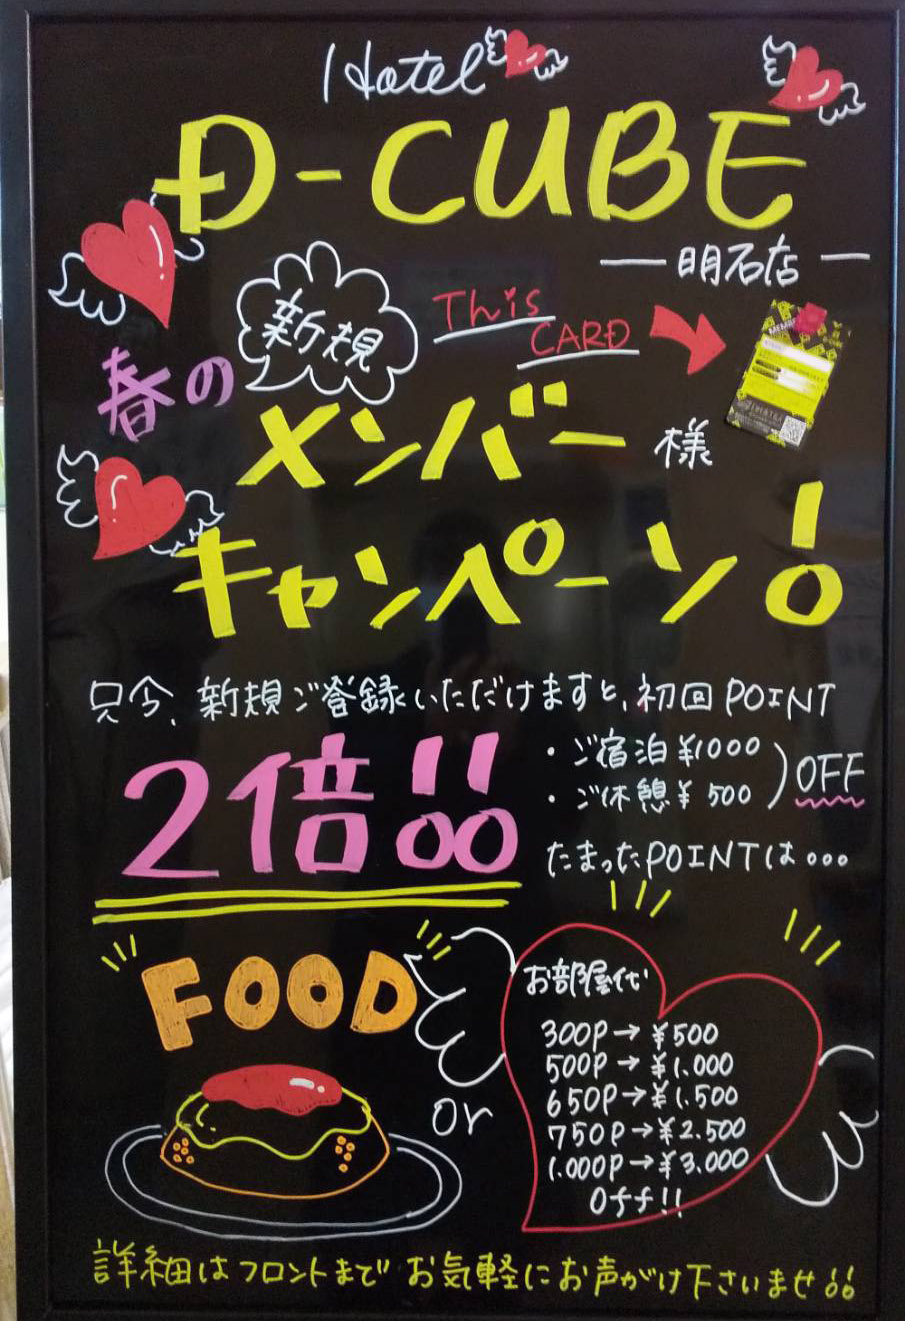 Hotel
D-CUBE
明石店
春の
新規
This
CARD
メンバー様
キャンペーン!
只今、新規ご登録いただけますと、初回POINT
2倍!!
・ご宿泊¥1000
・ご休憩¥500
OFF
たまったPOINTは・・・
FOOD
or
お部屋代
300P→¥500
500P→¥1.000
650P→¥1.500
750P→¥2.500
1.000P→¥3.000
Off!!
詳細はフロントまでお気軽にお声がけ下さいませ!!